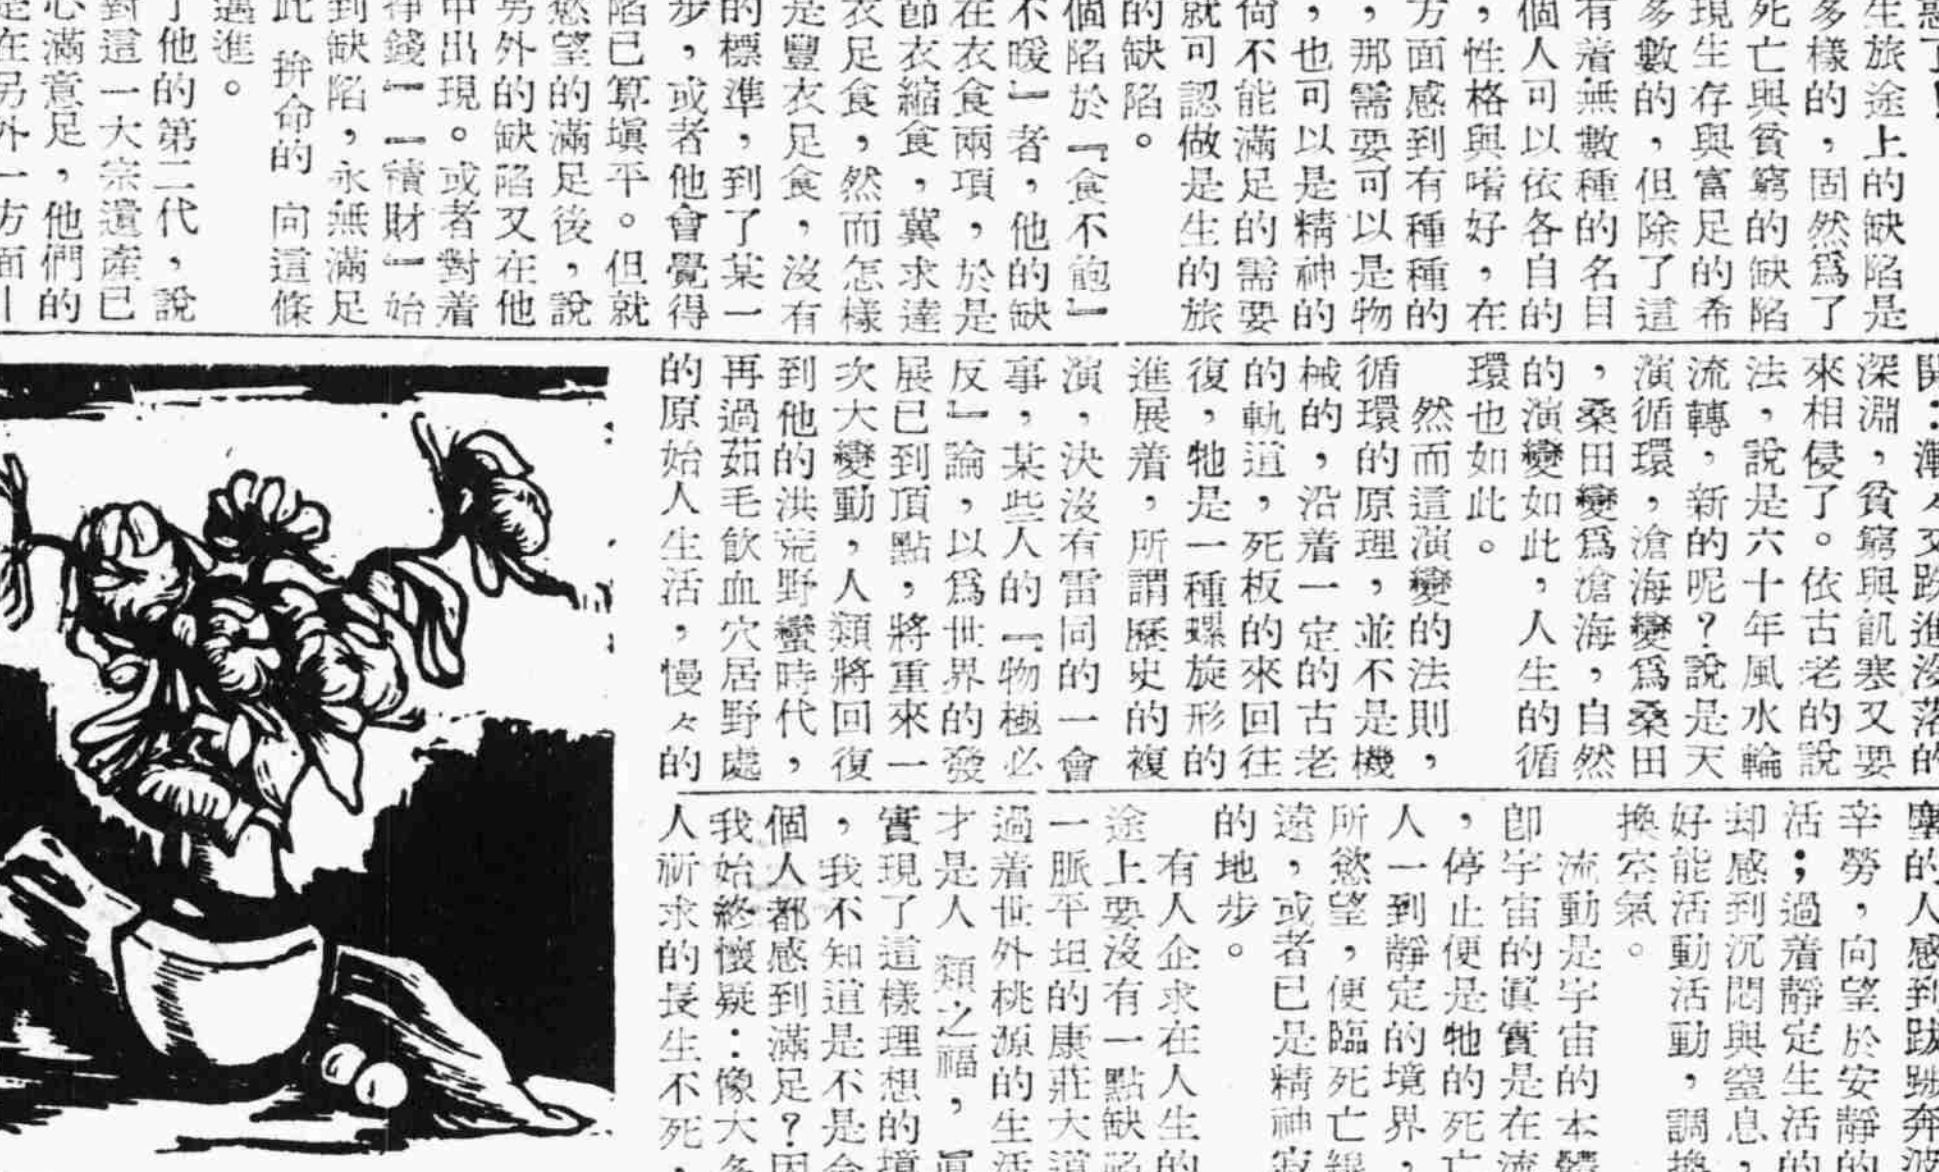 惑了！
生旅途上的缺陷是
多樣的，固然爲了
死亡與貧窮的缺陷
現生存與富足的希
多數的，但除了這
有着無數種的名目
個人可以依各自的
，性格與嗜好，在
方面感到有種種的
，那需要可以是物
，也可以是精神的
倘不能滿足的需要
就可認做是生的旅
的缺陷。
個陷於『食不飽』
不暖』者，他的缺
在衣食兩項，於是
節衣縮食，冀求達
衣足食，然而怎樣
是豐衣足食，沒有
的標準，到了某一
步，或者他會覺得
陷已算塡平。但就
慾望的滿足後，說
另外的缺陷又在他
中出現。或者對着
掙錢』『積財』始
到缺陷，永無滿足
此 拚命的 向這條
邁進。
了他的第二代，說
對這一大宗遺產已
心滿意足，他們的
是在另外一方面！
開：漸々又跌進沒落的
深淵，貧窮與飢寒又要
來相侵了。依古老的說
法，說是六十年風水輪
流轉，新的呢？說是天
演循環，滄海變爲桑田
，桑田變爲滄海，自然
的演變如此，人生的循
環也如此。
然而這演變的法則，
循環的原理，並不是機
械的，沿着一定的古老
的軌道，死板的來回往
復，牠是一種螺旋形的
進展着，所謂歷史的複
演，決沒有雷同的一會
事，某些人的『物極必
反』論，以爲世界的發
展已到頂點，將重來一
次大變動，人類將回復
到他的洪荒野蠻時代，
再過茹毛飲血穴居野處
的原始人生活，慢々的
的人感到跋跡奔波
辛勞，向望於安靜的
活；過着靜定生活的
却感到沉悶與窒息，
好能活動活動，調換
換空氣。
流動是宇宙的本體
卽宇宙的眞實是在流
，停止便是牠的死亡
人一到靜定的境界，
所慾望，便臨死亡線
遠，或者已是精神寂
的地步。
有人企求在人生的
途上要沒有一點缺陷
一脈平坦的康莊大道
過着世外桃源的生活
才是人 類之福，眞
實現了這樣理想的境
，我不知道是不是會
個人都感到滿足？因
我始終懷疑：像大多
人祈求的長生不死，